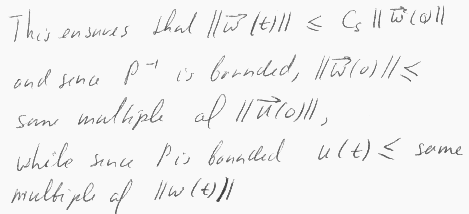 This ensures that ||w⃗(t)|| ≤ Cs ||w⃗(0)||
and since P⁻¹ is bounded, ||w⃗(0)|| ≤
some multiple of ||u⃗(0)||,
while since P is bounded u(t) ≤ some
multiple of ||w(t)||